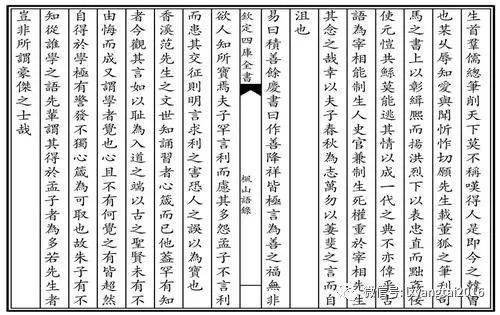 生首羣儒總筆削天下莫不稱嘆得人是即今之韓曾
也某久辱知愛與聞忻怍切願先生載董狐之筆刊司
馬之書上以彰緝熙而揚洪烈下以表忠直而點姦佞
使元愷共鯀莫能逃其情以成一代之典不亦偉乎古
語為宰相能制生人史官兼制生死權重於宰相先生
其念之哉幸以夫子春秋為志萬勿以萋斐之言而自
沮也
易曰積善餘慶書曰作善降祥皆極言為善之福無非
欽定四庫全書
楓山語錄
欲人知所寳焉夫子罕言利而慮其多怨孟子不言利
而患其交征則明言求利之害恐人之誤以為寳也
香溪范先生之文世知誦習者心箴而已他葢罕有知
者今觀其言如以耻為入道之端以古之聖賢未有不
由悔而成又謂學者覺也心且不有何覺之有皆超然
自得於學極有警發不獨心箴為可取也故朱子有不
知從誰學之語先輩謂其得於孟子者為多若先生者
豈非所謂豪傑之士哉